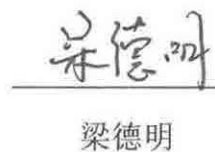 梁德明
梁德明